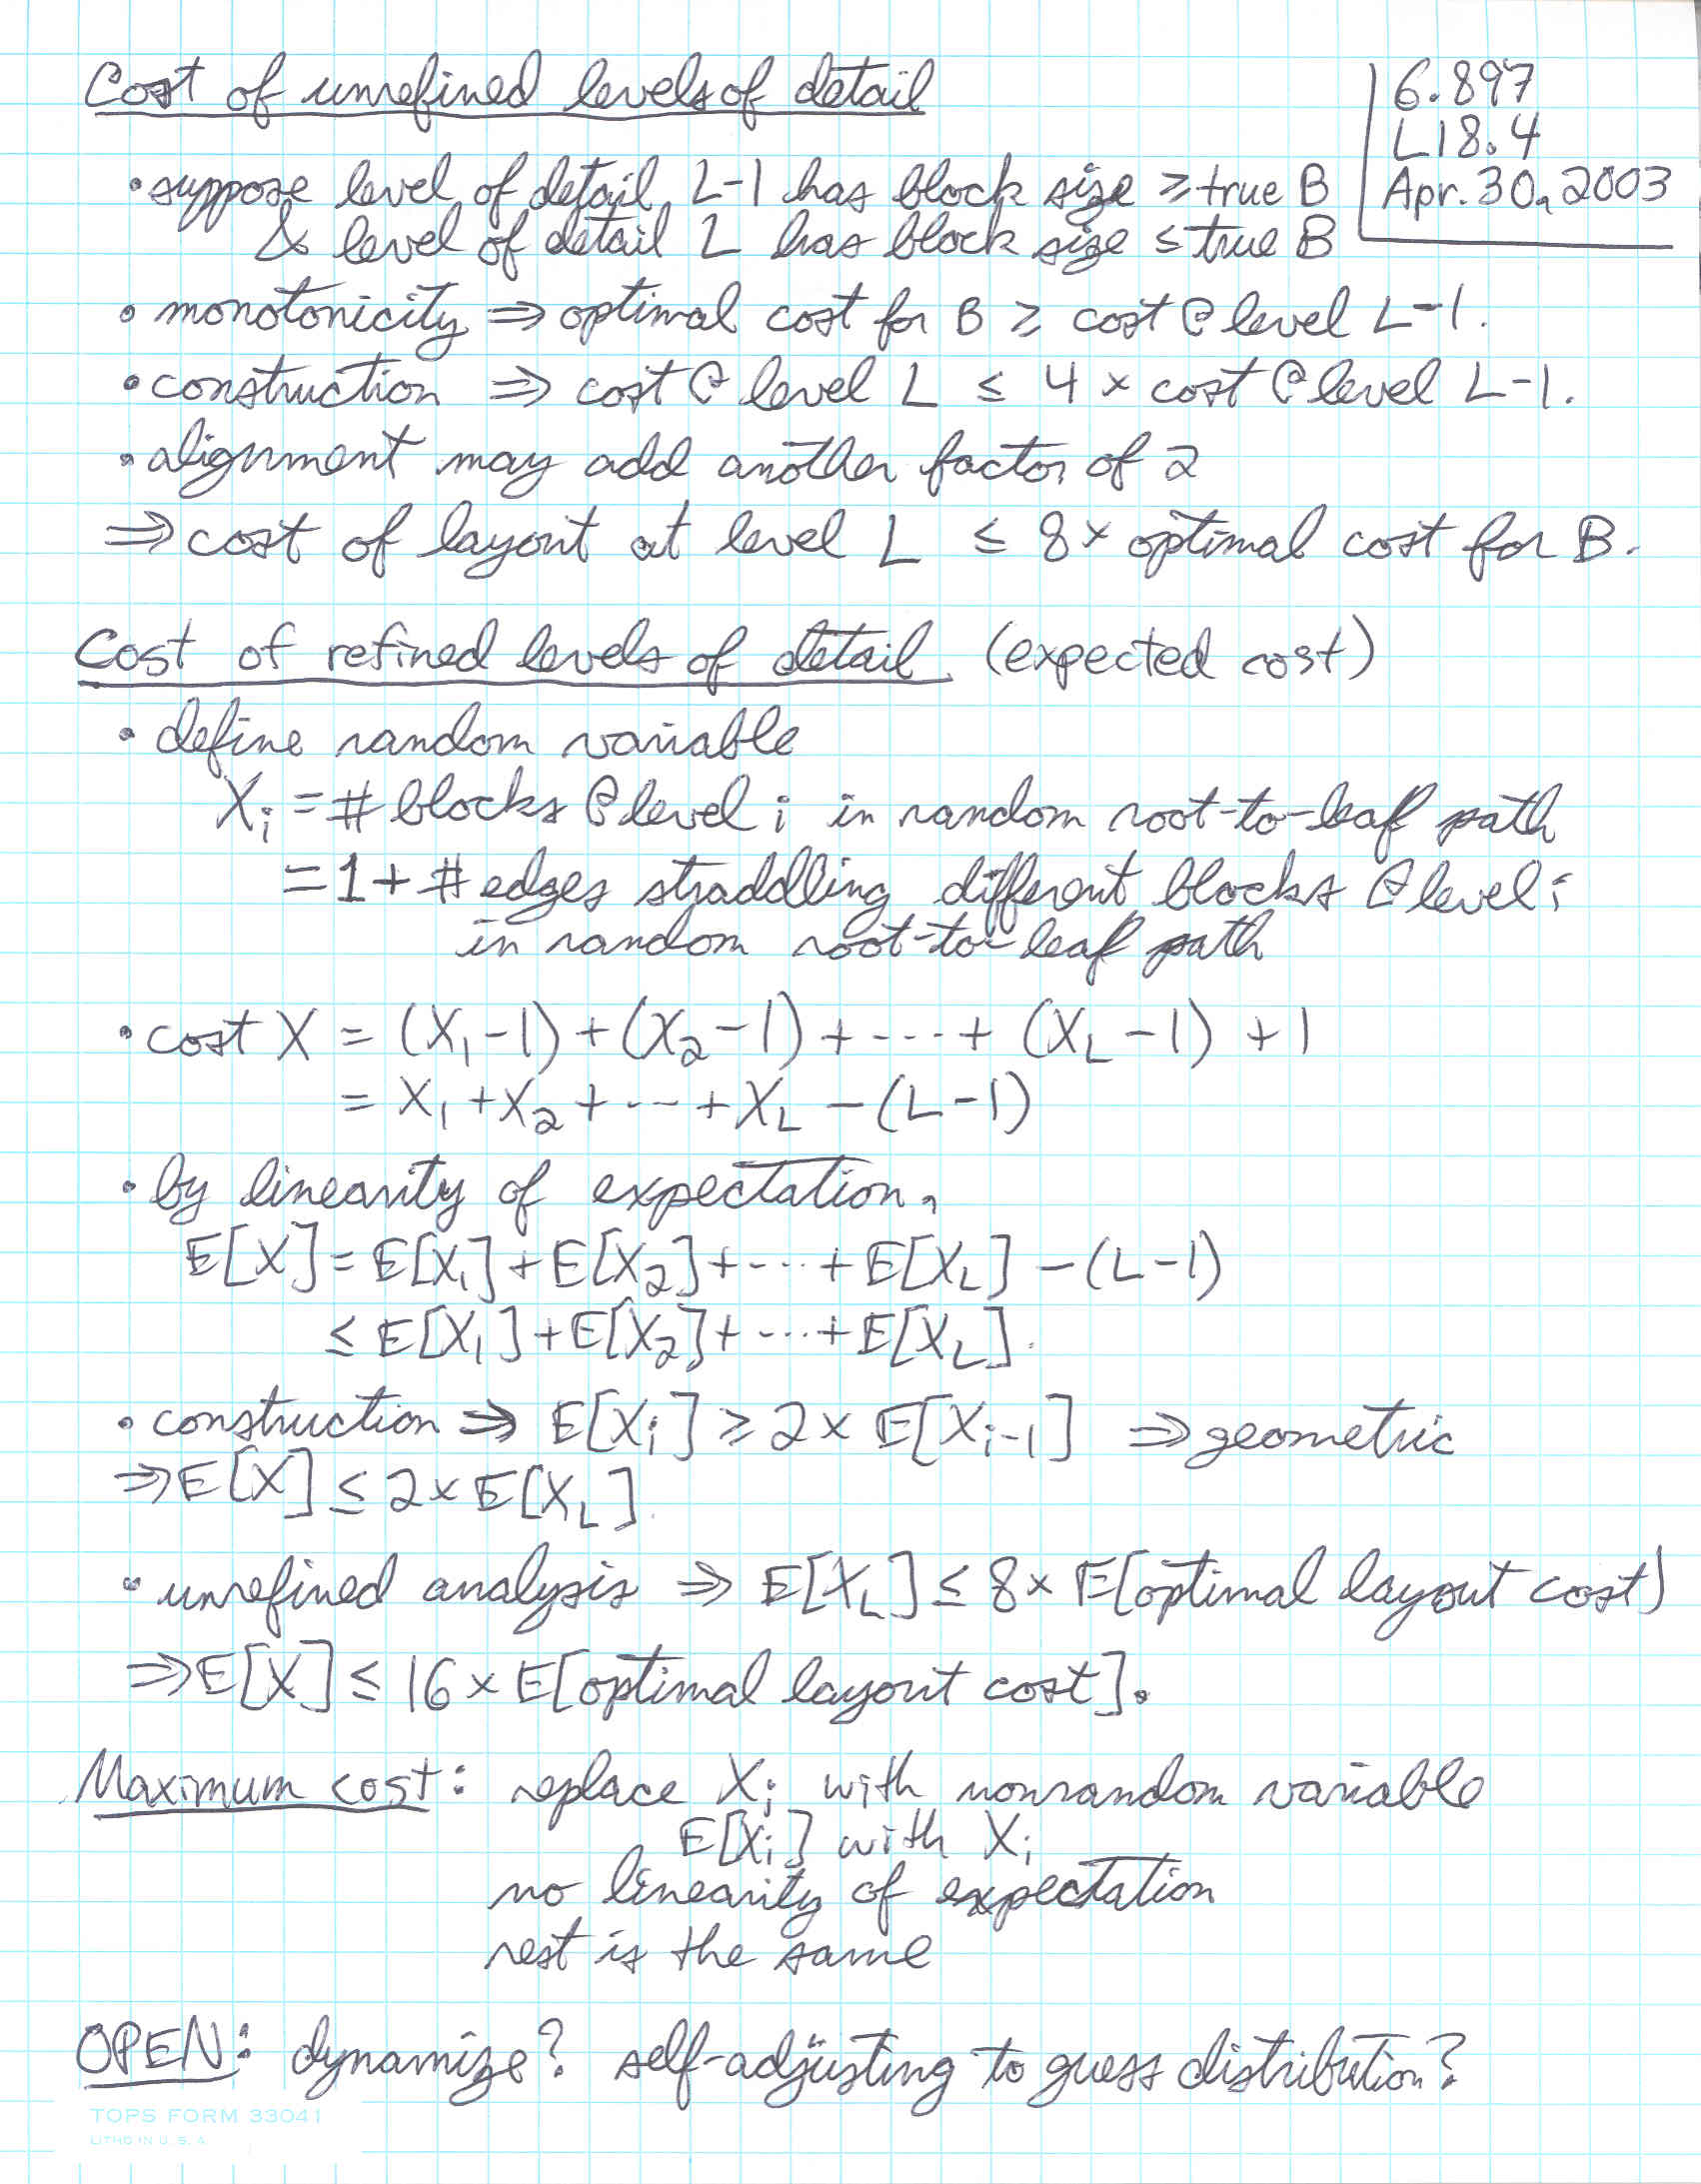 Cost of unrefined levels of detail
6.897
L18.4
Apr. 30, 2003
• suppose level of detail L-1 has block size ≥ true B
& level of detail L has block size ≤ true B
• monotonicity ⇒ optimal cost for B ≥ cost @ level L-1.
• construction ⇒ cost @ level L ≤ 4 × cost @ level L-1.
• alignment may add another factor of 2
⇒ cost of layout at level L ≤ 8 × optimal cost for B.
Cost of refined levels of detail (expected cost)
• define random variable
Xᵢ = # blocks @ level i in random root-to-leaf path
= 1 + # edges straddling different blocks @ level i
in random root-to-leaf path
• cost X = (X₁-1) + (X₂-1) + ··· + (X_L-1) + 1
= X₁ + X₂ + ··· + X_L - (L-1)
• by linearity of expectation,
E[X] = E[X₁] + E[X₂] + ··· + E[X_L] - (L-1)
≤ E[X₁] + E[X₂] + ··· + E[X_L].
• construction ⇒ E[Xᵢ] ≥ 2 × E[Xᵢ₋₁] ⇒ geometric
⇒ E[X] ≤ 2 × E[X_L].
• unrefined analysis ⇒ E[X_L] ≤ 8 × E[optimal layout cost]
⇒ E[X] ≤ 16 × E[optimal layout cost].
Maximum cost: replace Xᵢ with nonrandom variable
E[Xᵢ] with Xᵢ
no linearity of expectation
rest is the same
OPEN: dynamize? self-adjusting to guess distribution?
TOPS FORM 33041
LITHO IN U. S. A.